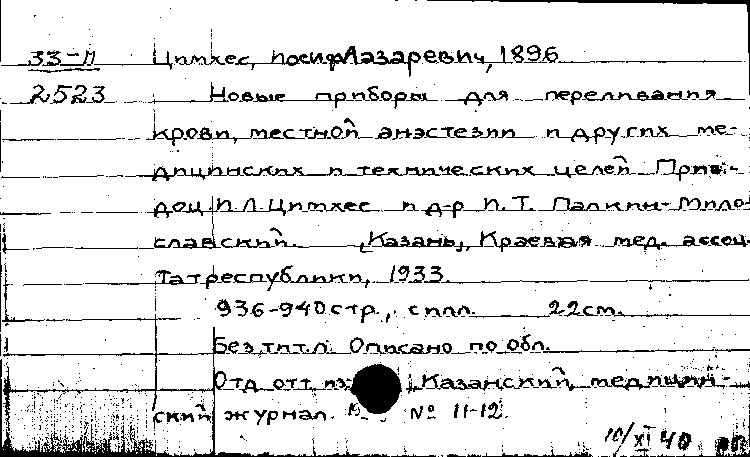 33-П Цимхес, Иосиф Лазаревич, 1896
2523 Новые приборы для переливания
крови, местной анэстезии и других ме-
дицинских и технических целей Прив.-
доц И.Л. Цимхес и д-р И.Т. Палкин-Мило
славский. [Казань], Краевая мед. ассоц.
Татреспублики, 1933.
936-940 стр., с илл. 22 см.
Без тит. л. Описано по обл.
Отд отт из: Казанский медицин-
ский журнал. № 11-12.
10/XI 40